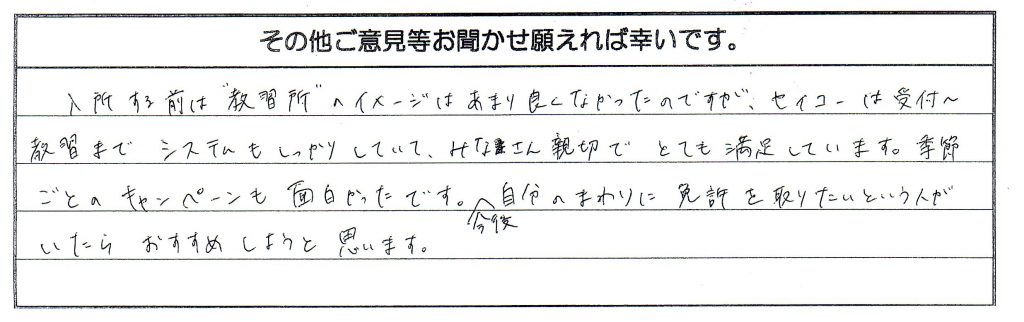 その他ご意見等お聞かせ願えれば幸いです。
入所する前は"教習所"のイメージはあまり良くなかったのですが、セイコーは受付～
教習まで システムもしっかりしていて、みなさん親切で とても満足しています。季節
ごとのキャンペーンも 面白かったです。今後自分のまわりに 免許を取りたいという人が
いたら おすすめしようと 思います。